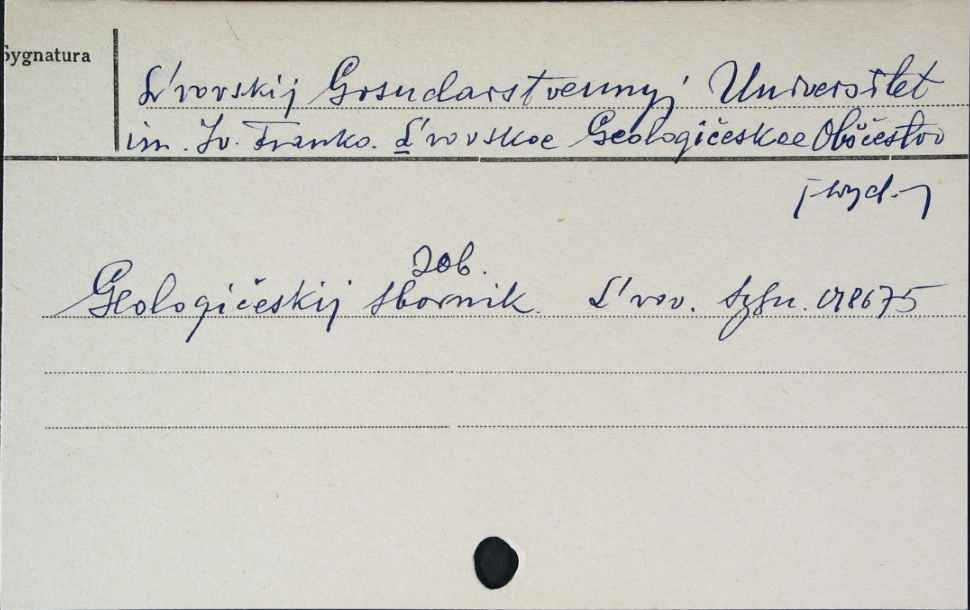 Sygnatura
L'vovskij Gosudarstvennyj Universitet
im. Iv. Franko. L'vovskoe Geologičeskoe Obščestvo
[wyd.]
Zob.
Geologičeskij sbornik. L'vov. Sygn. 018675